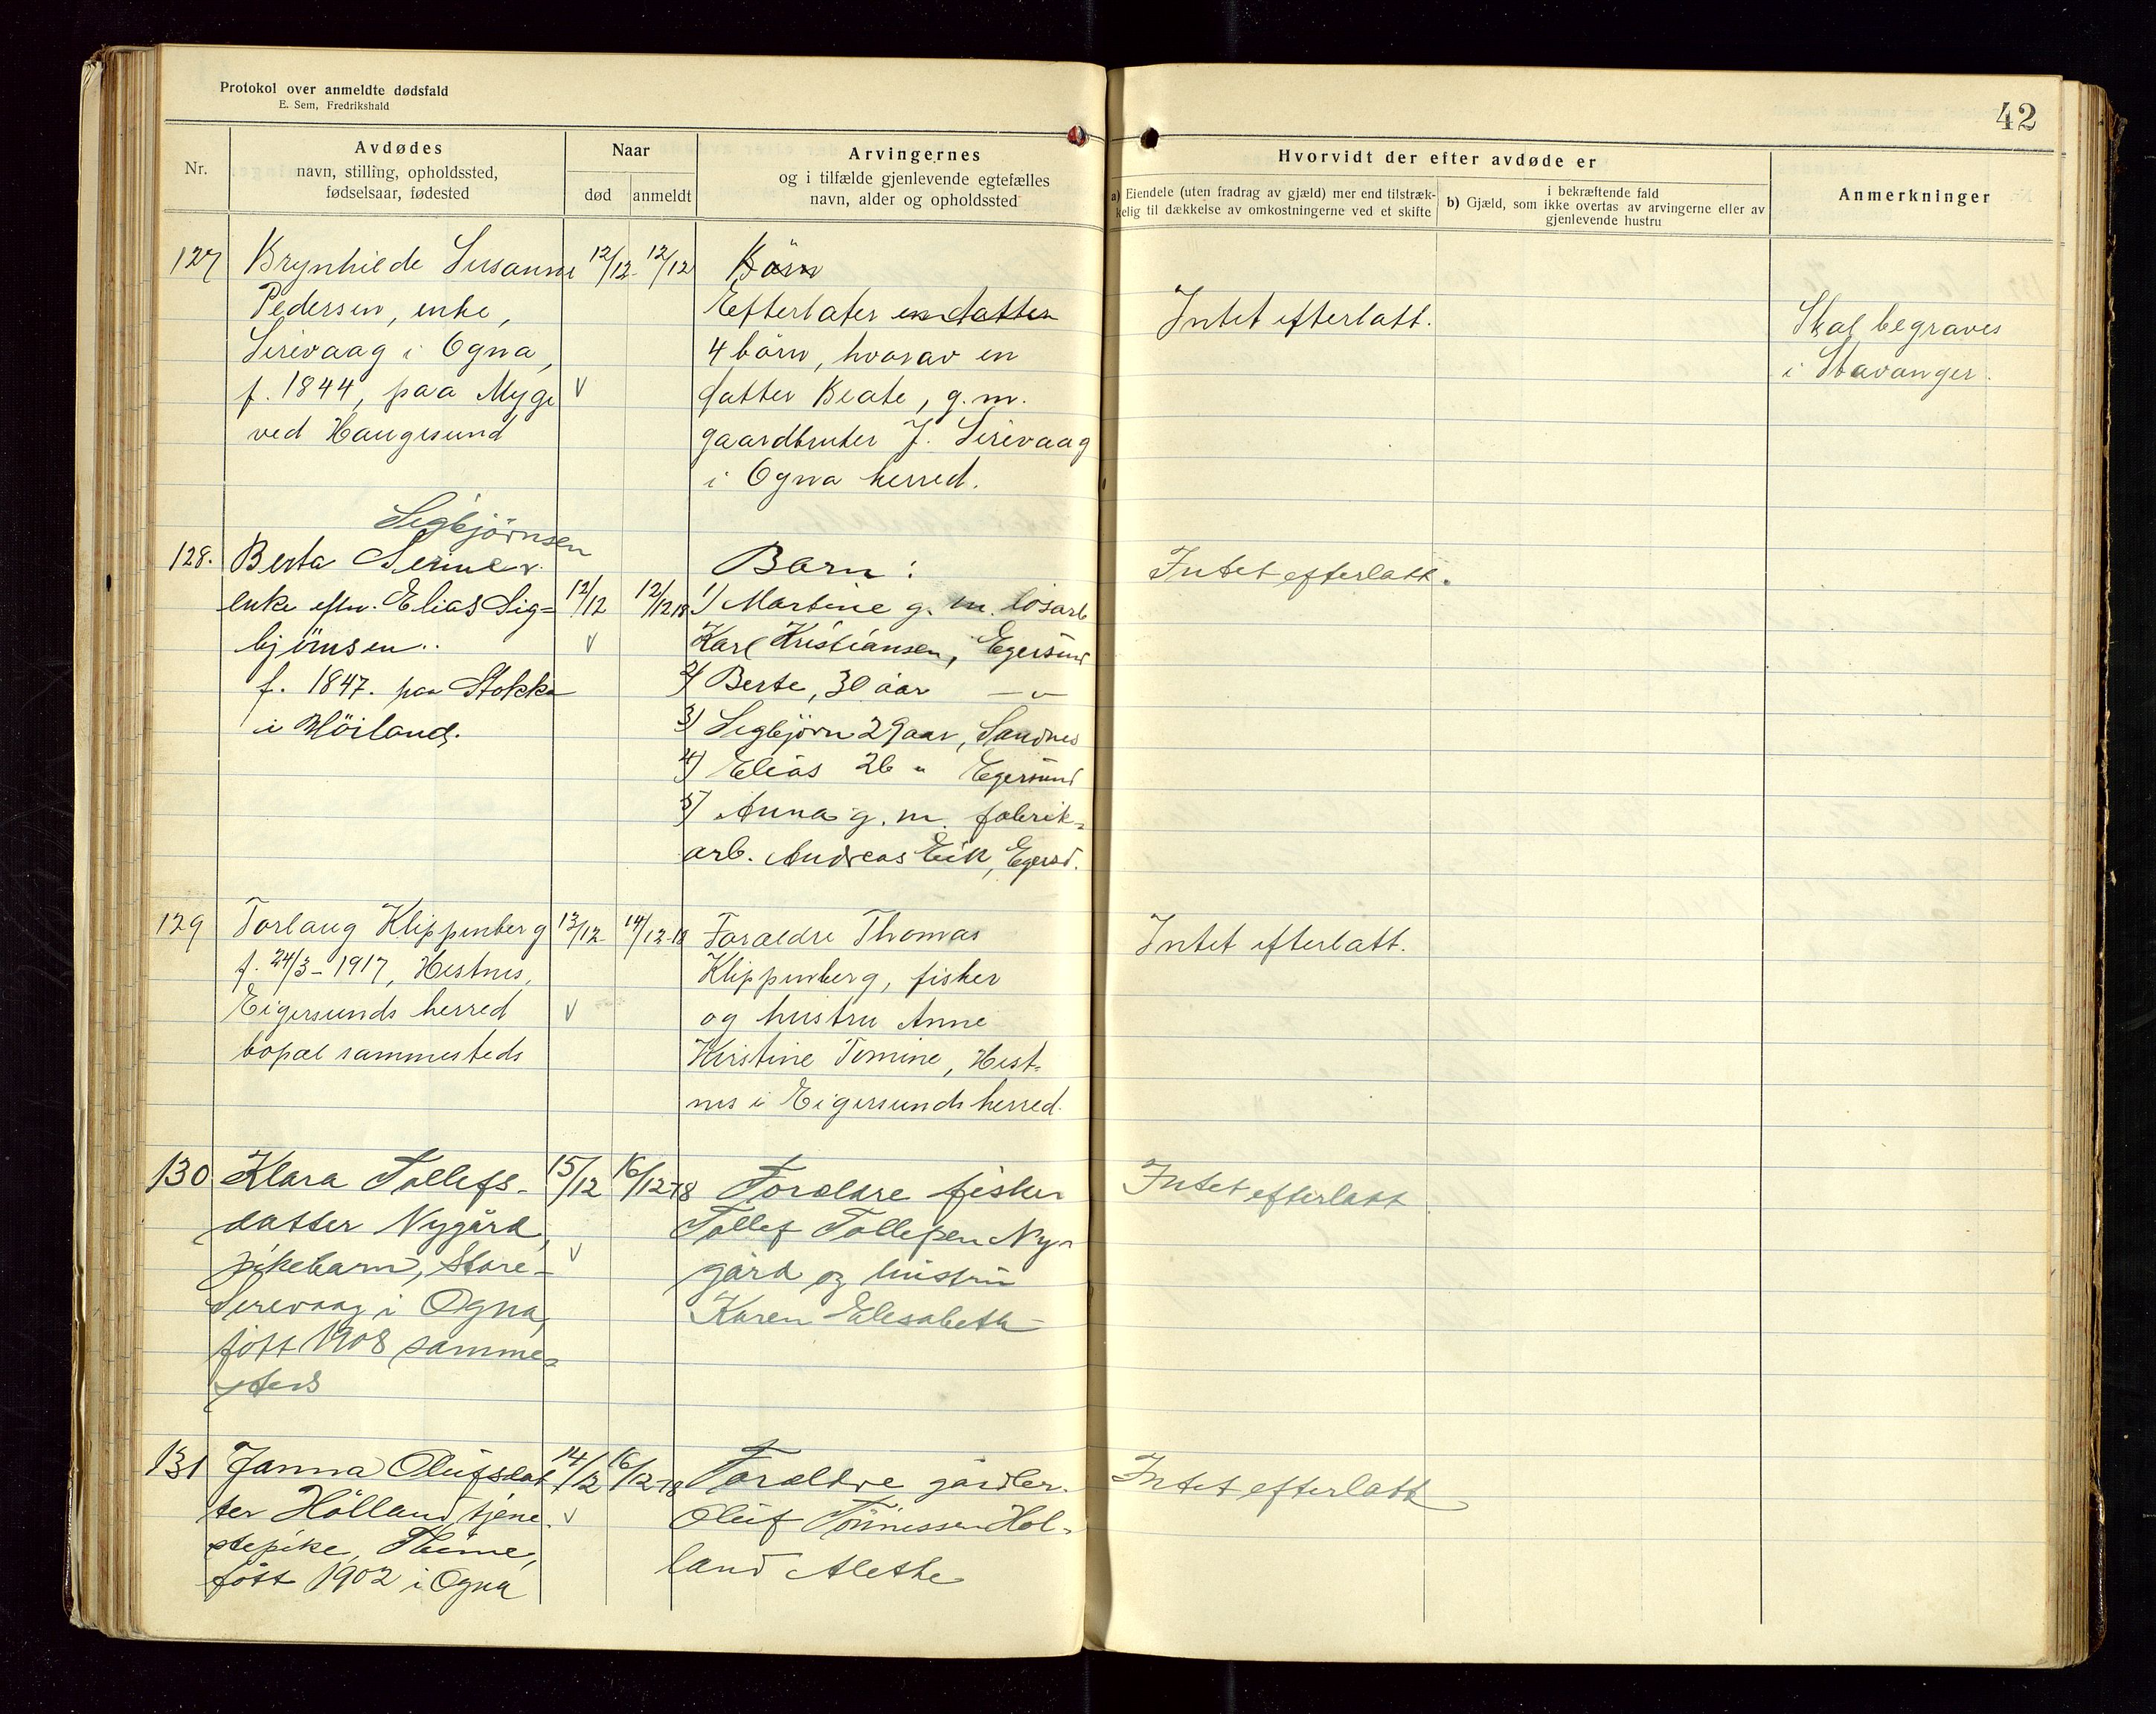 Protokol over anmeldte dødsfald
E. Sem, Fredrikshald
42
Nr.
Avdødes
navn, stilling, opholdssted,
fødselsaar, fødested
Naar
død
anmeldt
Arvingernes
og i tilfælde gjenlevende egtefælles
navn, alder og opholdssted
Hvorvidt der efter avdøde er
a) Eiendele (uten fradrag av gjæld) mer end tilstræk-
kelig til dækkelse av omkostningerne ved et skifte
i bekræftende fald
b) Gjæld, som ikke overtas av arvingerne eller av
gjenlevende hustru
Anmerkninger
127
Brynhilde Susanne
Pedersen, enke,
Sirevaag i Ogna,
f. 1844, paa Myge
ved Haugesund
12/12
12/12
Börn
Efterlater en datter
4 börn, hvorav en
datter Beate, g. m.
gaardbruker J. Sirevaag
i Ogna herred.
Intet efterlatt.
Skal begraves
i Stavanger.
Sigbjörnsen
128.
Berta Serine
enke efter Elias Sig=
björnsen..
f. 1847. paa Stokka
i Höiland.
12/12
12/12 18
Barn:
1) Martine g. m. losarb
Karl Kristiansen, Egersund
2) Berte, 30 aar — " —
3) Sigbjörn 29 aar, Sandnes
4) Elias 26 " Egersund
5) Anna g. m. fabrik=
arb. Andreas Eik, Egersd.
Intet efterlatt.
129
Torlaug Klippenberg
f. 24/3-1917, Hestnes,
Eigersunds herred
bopæl sammesteds
13/12
14/12-18
Foraeldre Thomas
Klippenberg, fisker
og hustru Anne
Kirstine Tomine, Hest-
nes i Eigersunds herred.
Intet efterlatt.
130
Klara Tollefs-
datter Nygård,
pikebarn, Store-
Sirevaag i Ogna,
født 1908 samme=
steds
15/12
16/12-18
Foraeldre fisker
Tollef Tollefsen Ny-
gård og hustru
Karen Elisabeth
Intet efterlatt
131
Janna Olufsdat
ter Hölland, tjene
stepike, Thime,
født 1902 i Ogna
14/12
16/12-18
Foraeldre gårdbr.
Oluf Tönnessen Hol-
land Alethe
Intet efterlatt